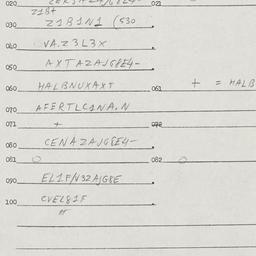 020 021
Z1B+
030 Z1B1N1 (S30
040 VA.Z3L3X
050 AXTAZAJG8E4-
060 HALBNUXAXT 061 + = HALB
070 AFERTLCANA.N
071 + 072
080 CENAZAJG8E4-
081 O 082 O
090 EL1F/N3ZAJG8E
100 CVEL81F
"